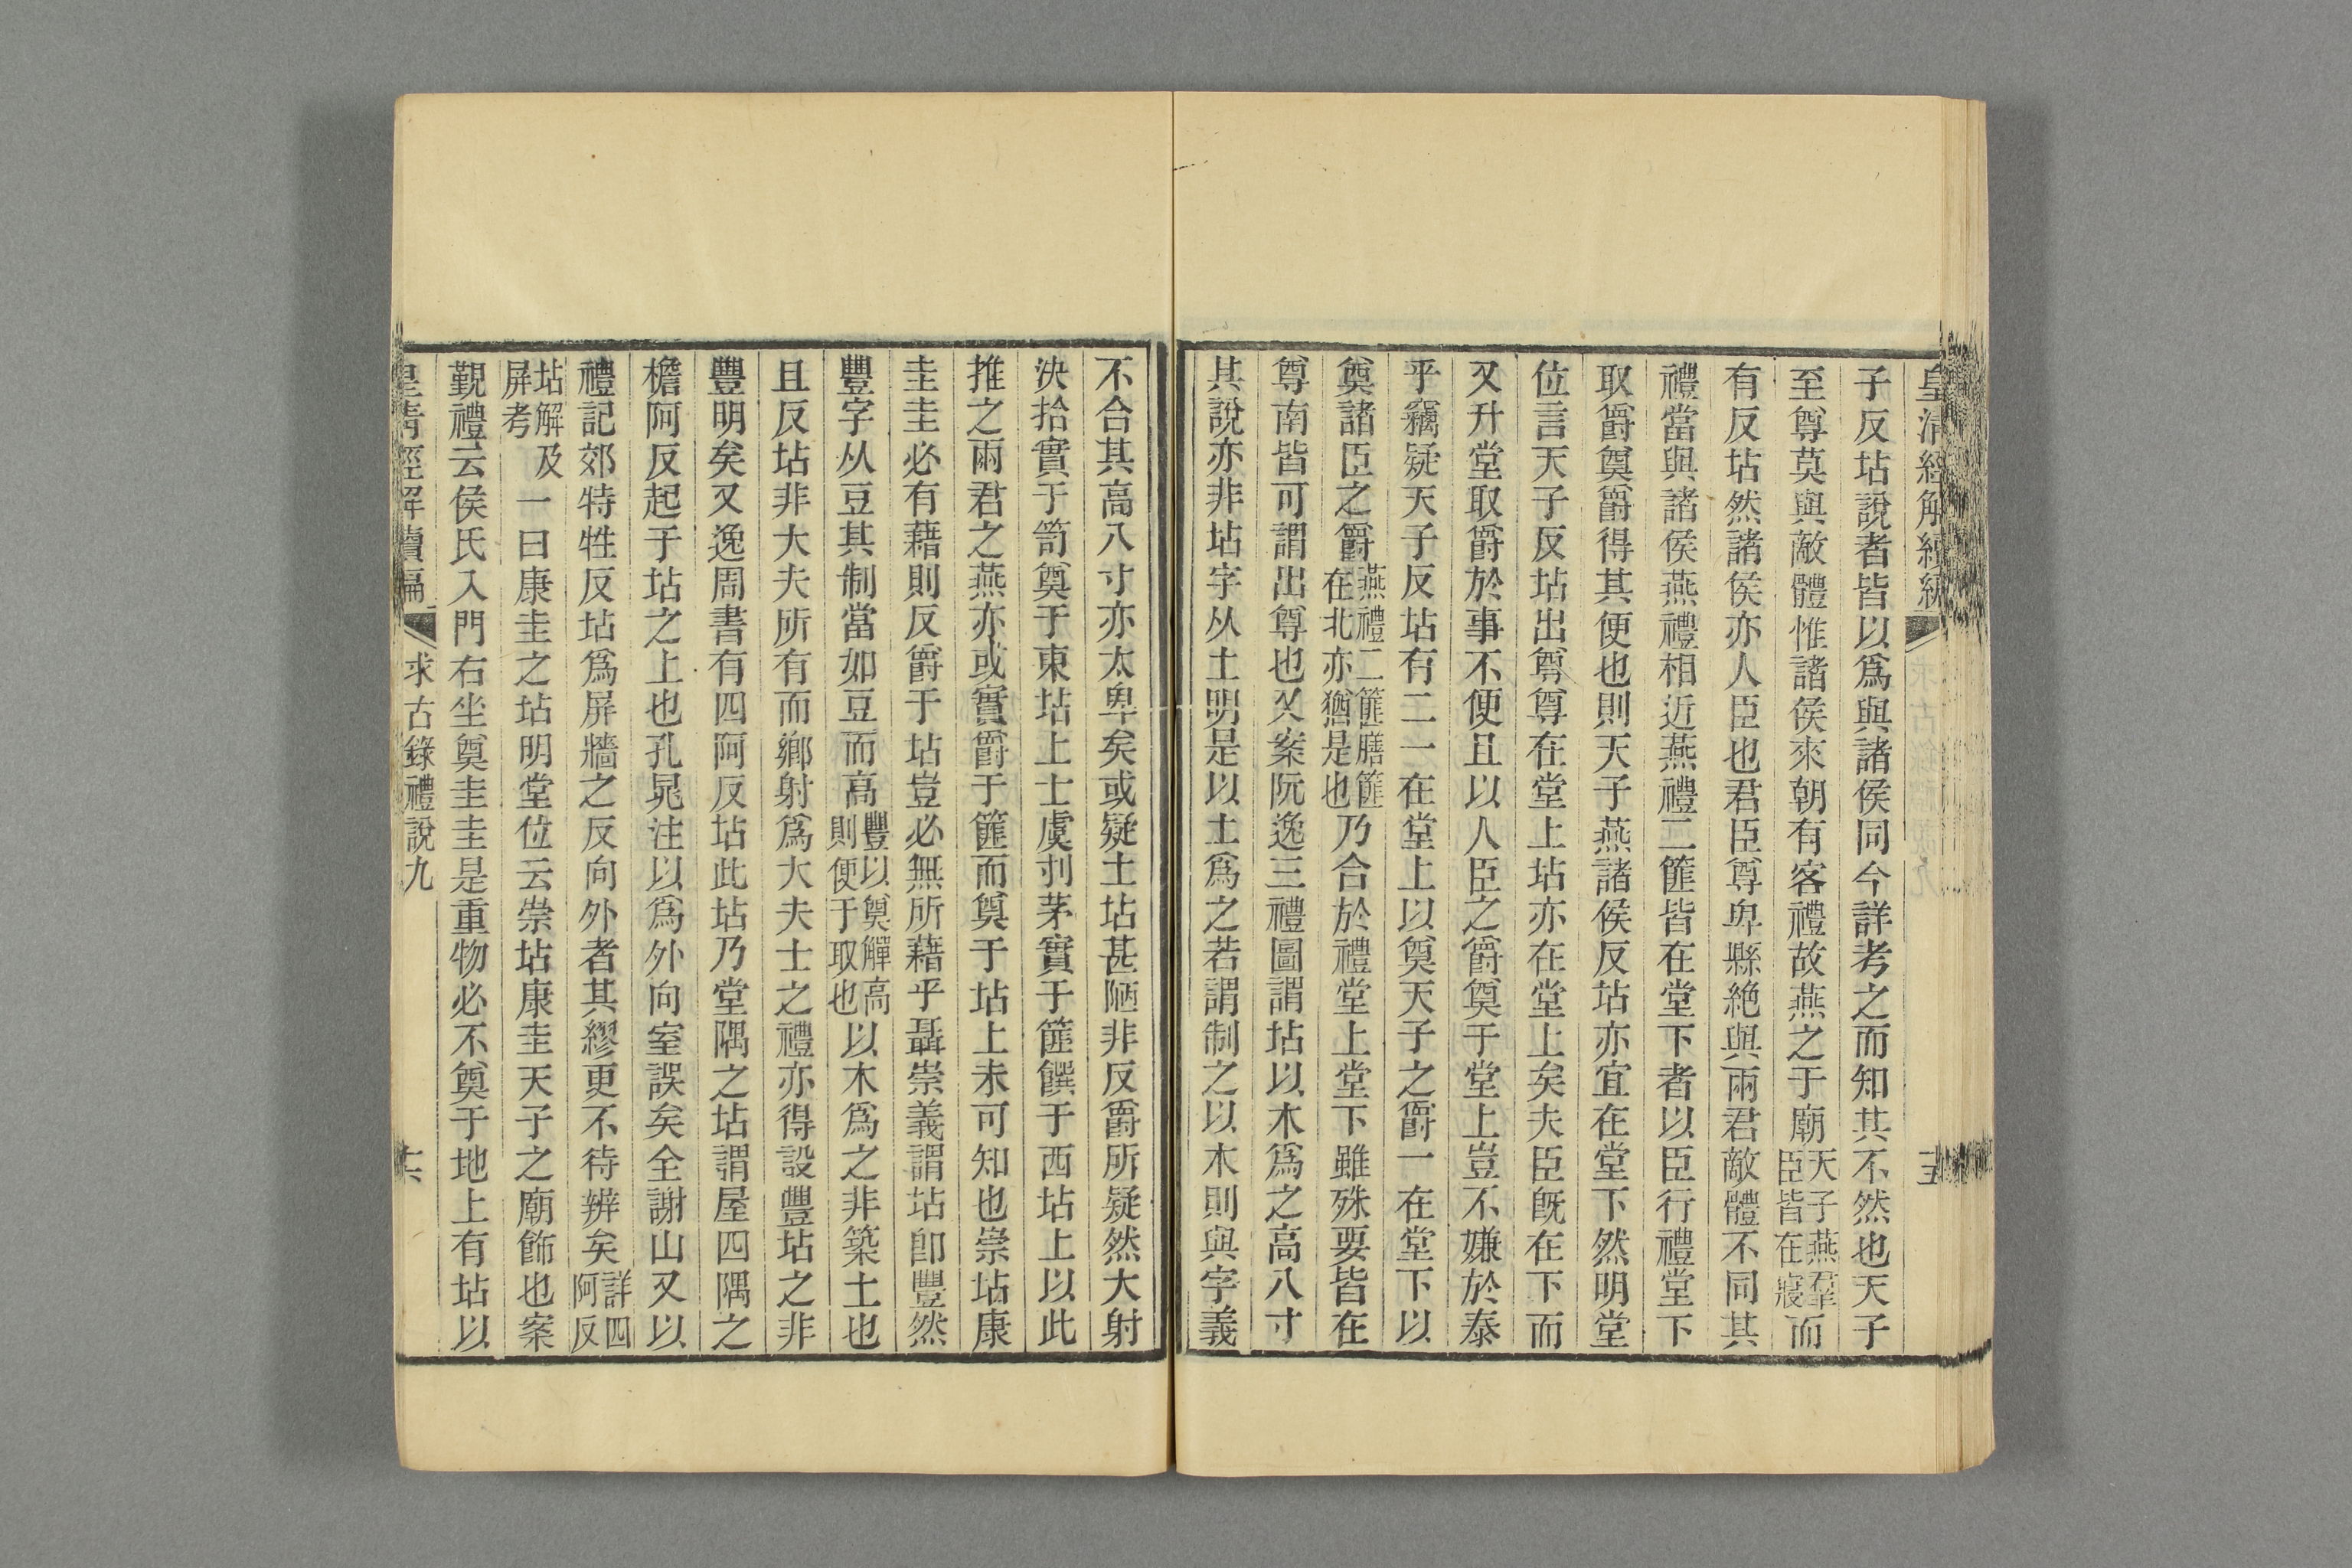 皇清經解續編
子反坫說者皆以爲與諸侯同今詳考之而知其不然也天子
至尊莫與敵體惟諸侯來朝有客禮故燕之于廟天子燕羣臣皆在寢而
有反坫然諸侯亦人臣也君臣尊卑縣絶與兩君敵體不同其
禮當與諸侯燕禮相近燕禮二篚皆在堂下者以臣行禮堂下
取爵奠爵得其便也則天子燕諸侯反坫亦宜在堂下然明堂
位言天子反坫出尊尊在堂上坫亦在堂上矣夫臣旣在下而
又升堂取爵於事不便且以人臣之爵奠于堂上豈不嫌於泰
乎竊疑天子反坫有二一在堂上以奠天子之爵一在堂下以
奠諸臣之爵燕禮二篚膳篚在北亦猶是也乃合於禮堂上堂下雖殊要皆在
尊南皆可謂出尊也又案阮逸三禮圖謂坫以木爲之高八寸
其說亦非坫字从土明是以土爲之若謂制之以木則與字義
不合其高八寸亦太卑矣或疑土坫甚陋非反爵所疑然大射
決拾實于笥奠于東坫上士虞刌茅實于篚饌于西坫上以此
推之兩君之燕亦或實爵于篚而奠于坫上未可知也崇坫康
圭圭必有藉則反爵于坫豈必無所藉乎聶崇義謂坫卽豐然
豐字从豆其制當如豆而高豐以奠觶高則便于取也以木爲之非築土也
且反坫非大夫所有而鄉射爲大夫士之禮亦得設豐坫之非
豐明矣又逸周書有四阿反坫此坫乃堂隅之坫謂屋四隅之
檐阿反起于坫之上也孔晁注以爲外向室誤矣全謝山又以
禮記郊特牲反坫爲屏牆之反向外者其繆更不待辨矣詳四阿反
坫解及屏考一曰康圭之坫明堂位云崇坫康圭天子之廟飾也案
覲禮云侯氏入門右坐奠圭圭是重物必不奠于地上有坫以
皇清經解續編 求古錄禮說九